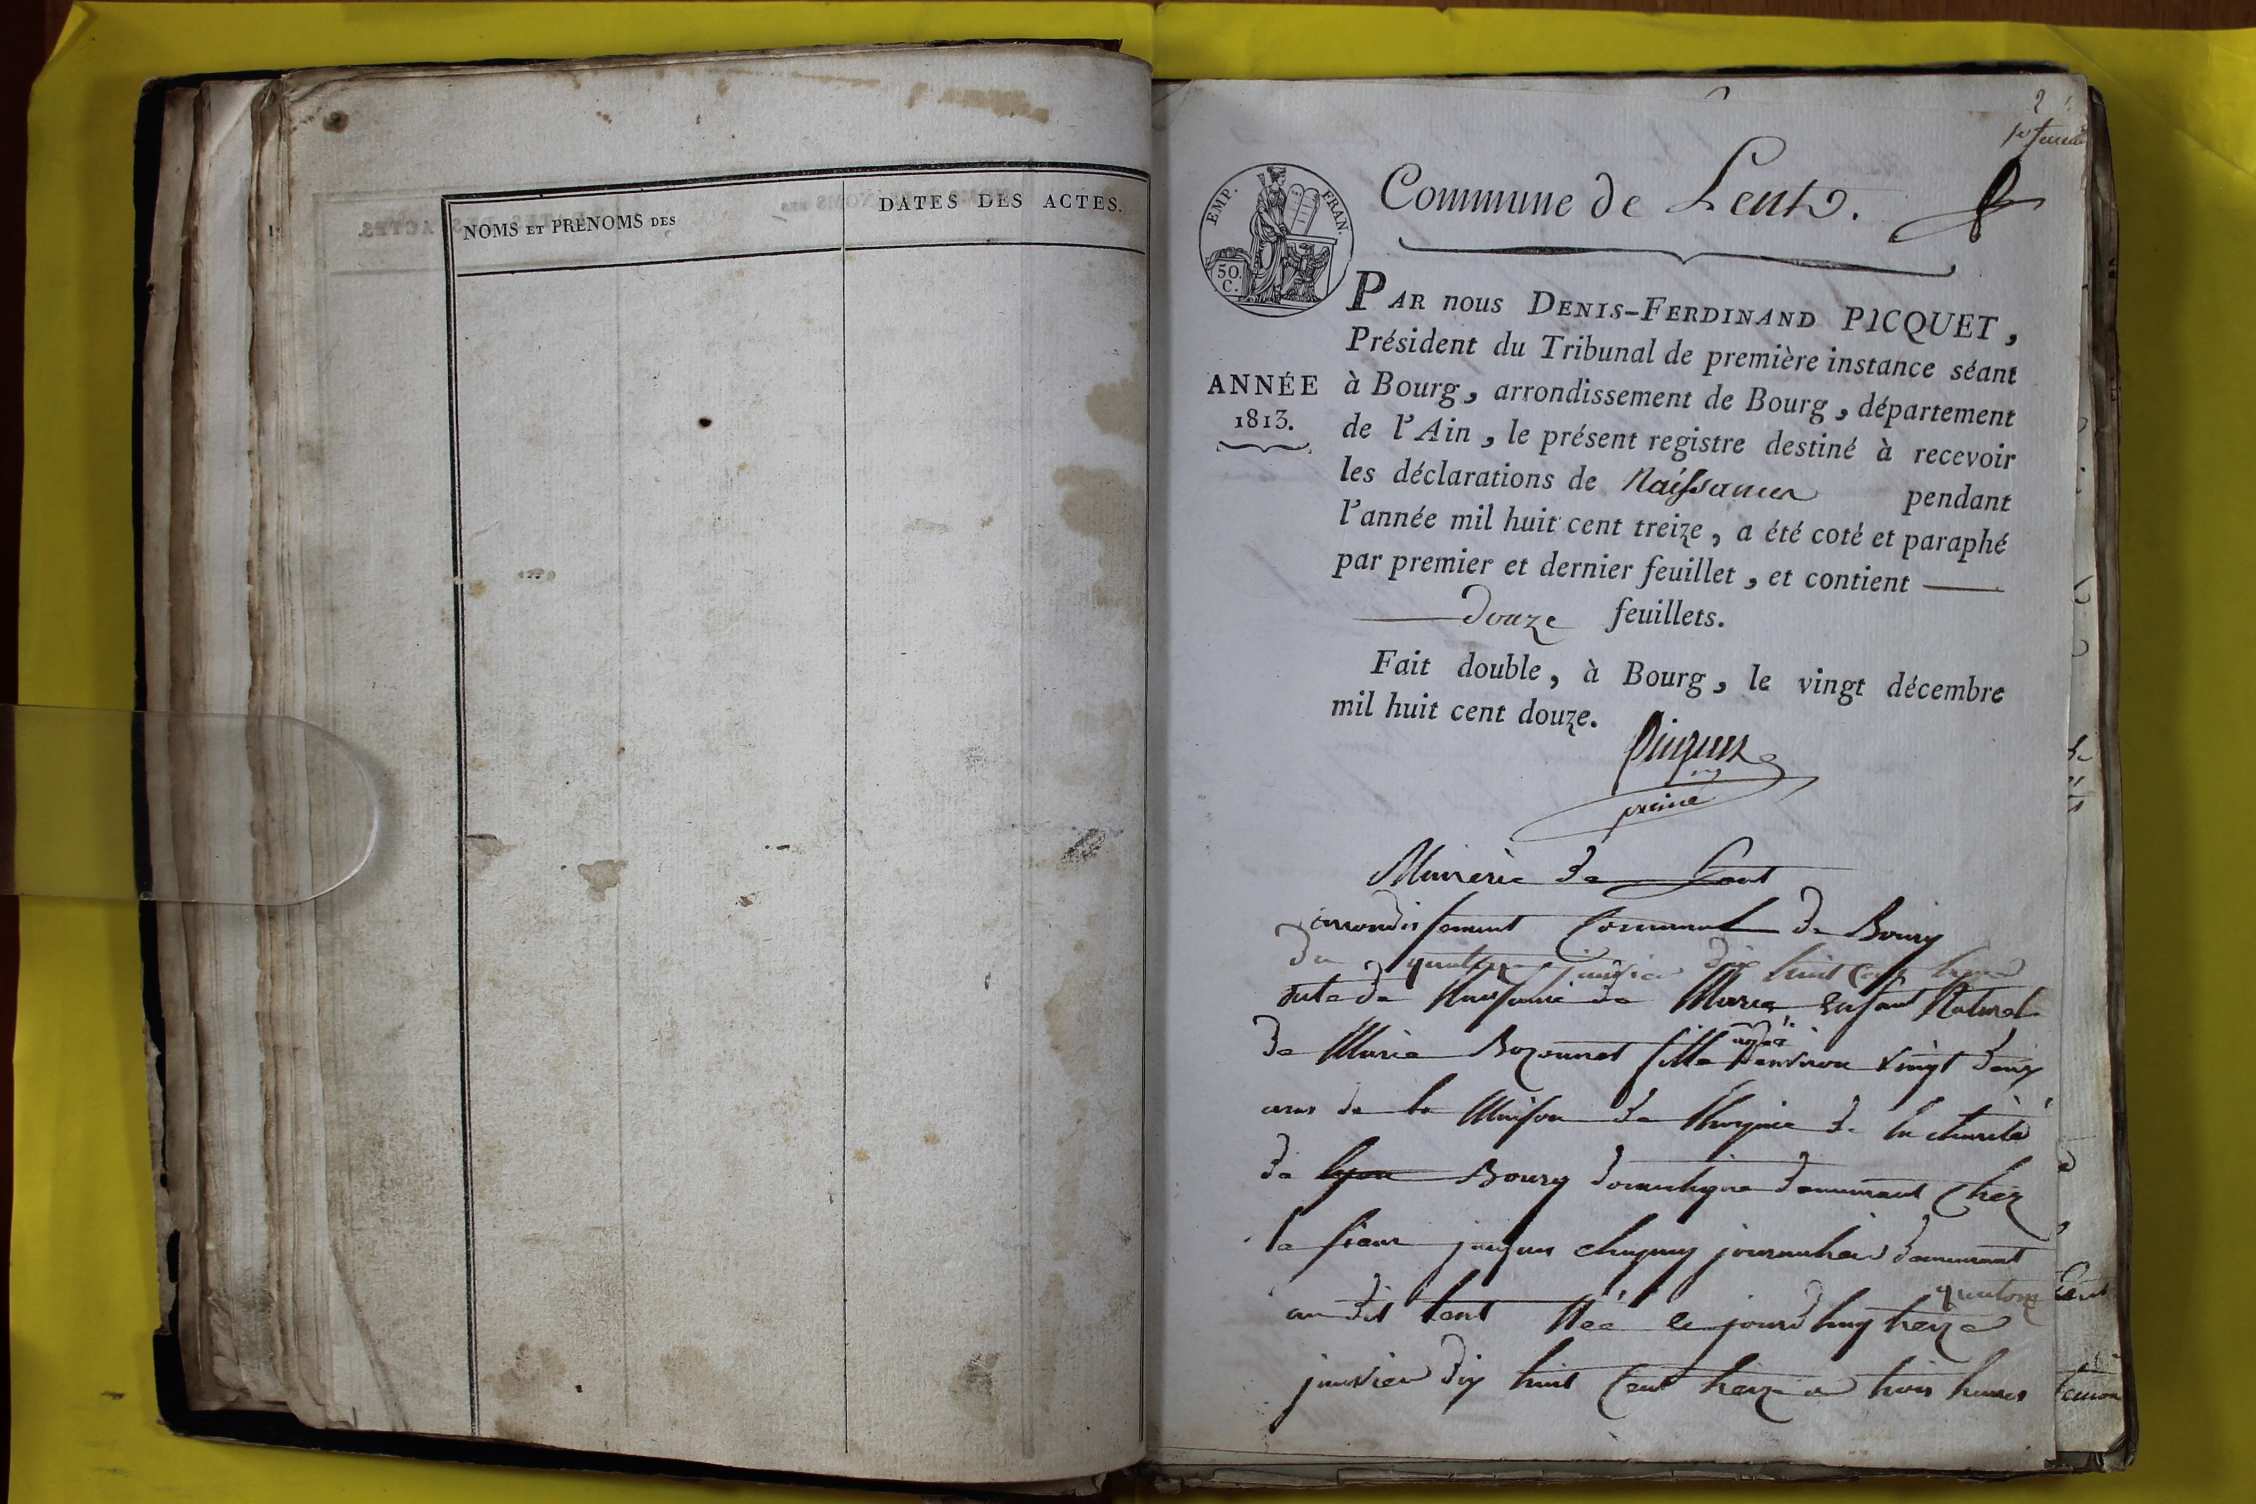 NOMS ET PRÉNOMS DES
DATES DES ACTES.
2
1er feuillet
Commune de Lent.
EMP. FRAN.
50.
C.
ANNÉE
1813.
PAR nous DENIS-FERDINAND PICQUET,
Président du Tribunal de première instance séant
à Bourg, arrondissement de Bourg, département
de l'Ain, le présent registre destiné à recevoir
les déclarations de Naissances pendant
l'année mil huit cent treize, a été coté et paraphé
par premier et dernier feuillet, et contient
douze feuillets.
Fait double, à Bourg, le vingt décembre
mil huit cent douze.
Picquet
Mairerie de Lent
arrondissement Communal de Bourg
du quatorze janvier dix huit cent treize
acte de Naissance de Marie enfant Naturel
de Marie Bozonnet fille agée d'environ vingt deux
ans de la Maison de de la charité
de lyon Bourg domestique demeurant chez
le sieur jacques journalier demeurant
au dit lent Née le jourd'huy treize quatorze
janvier dix huit cent treize a trois heures